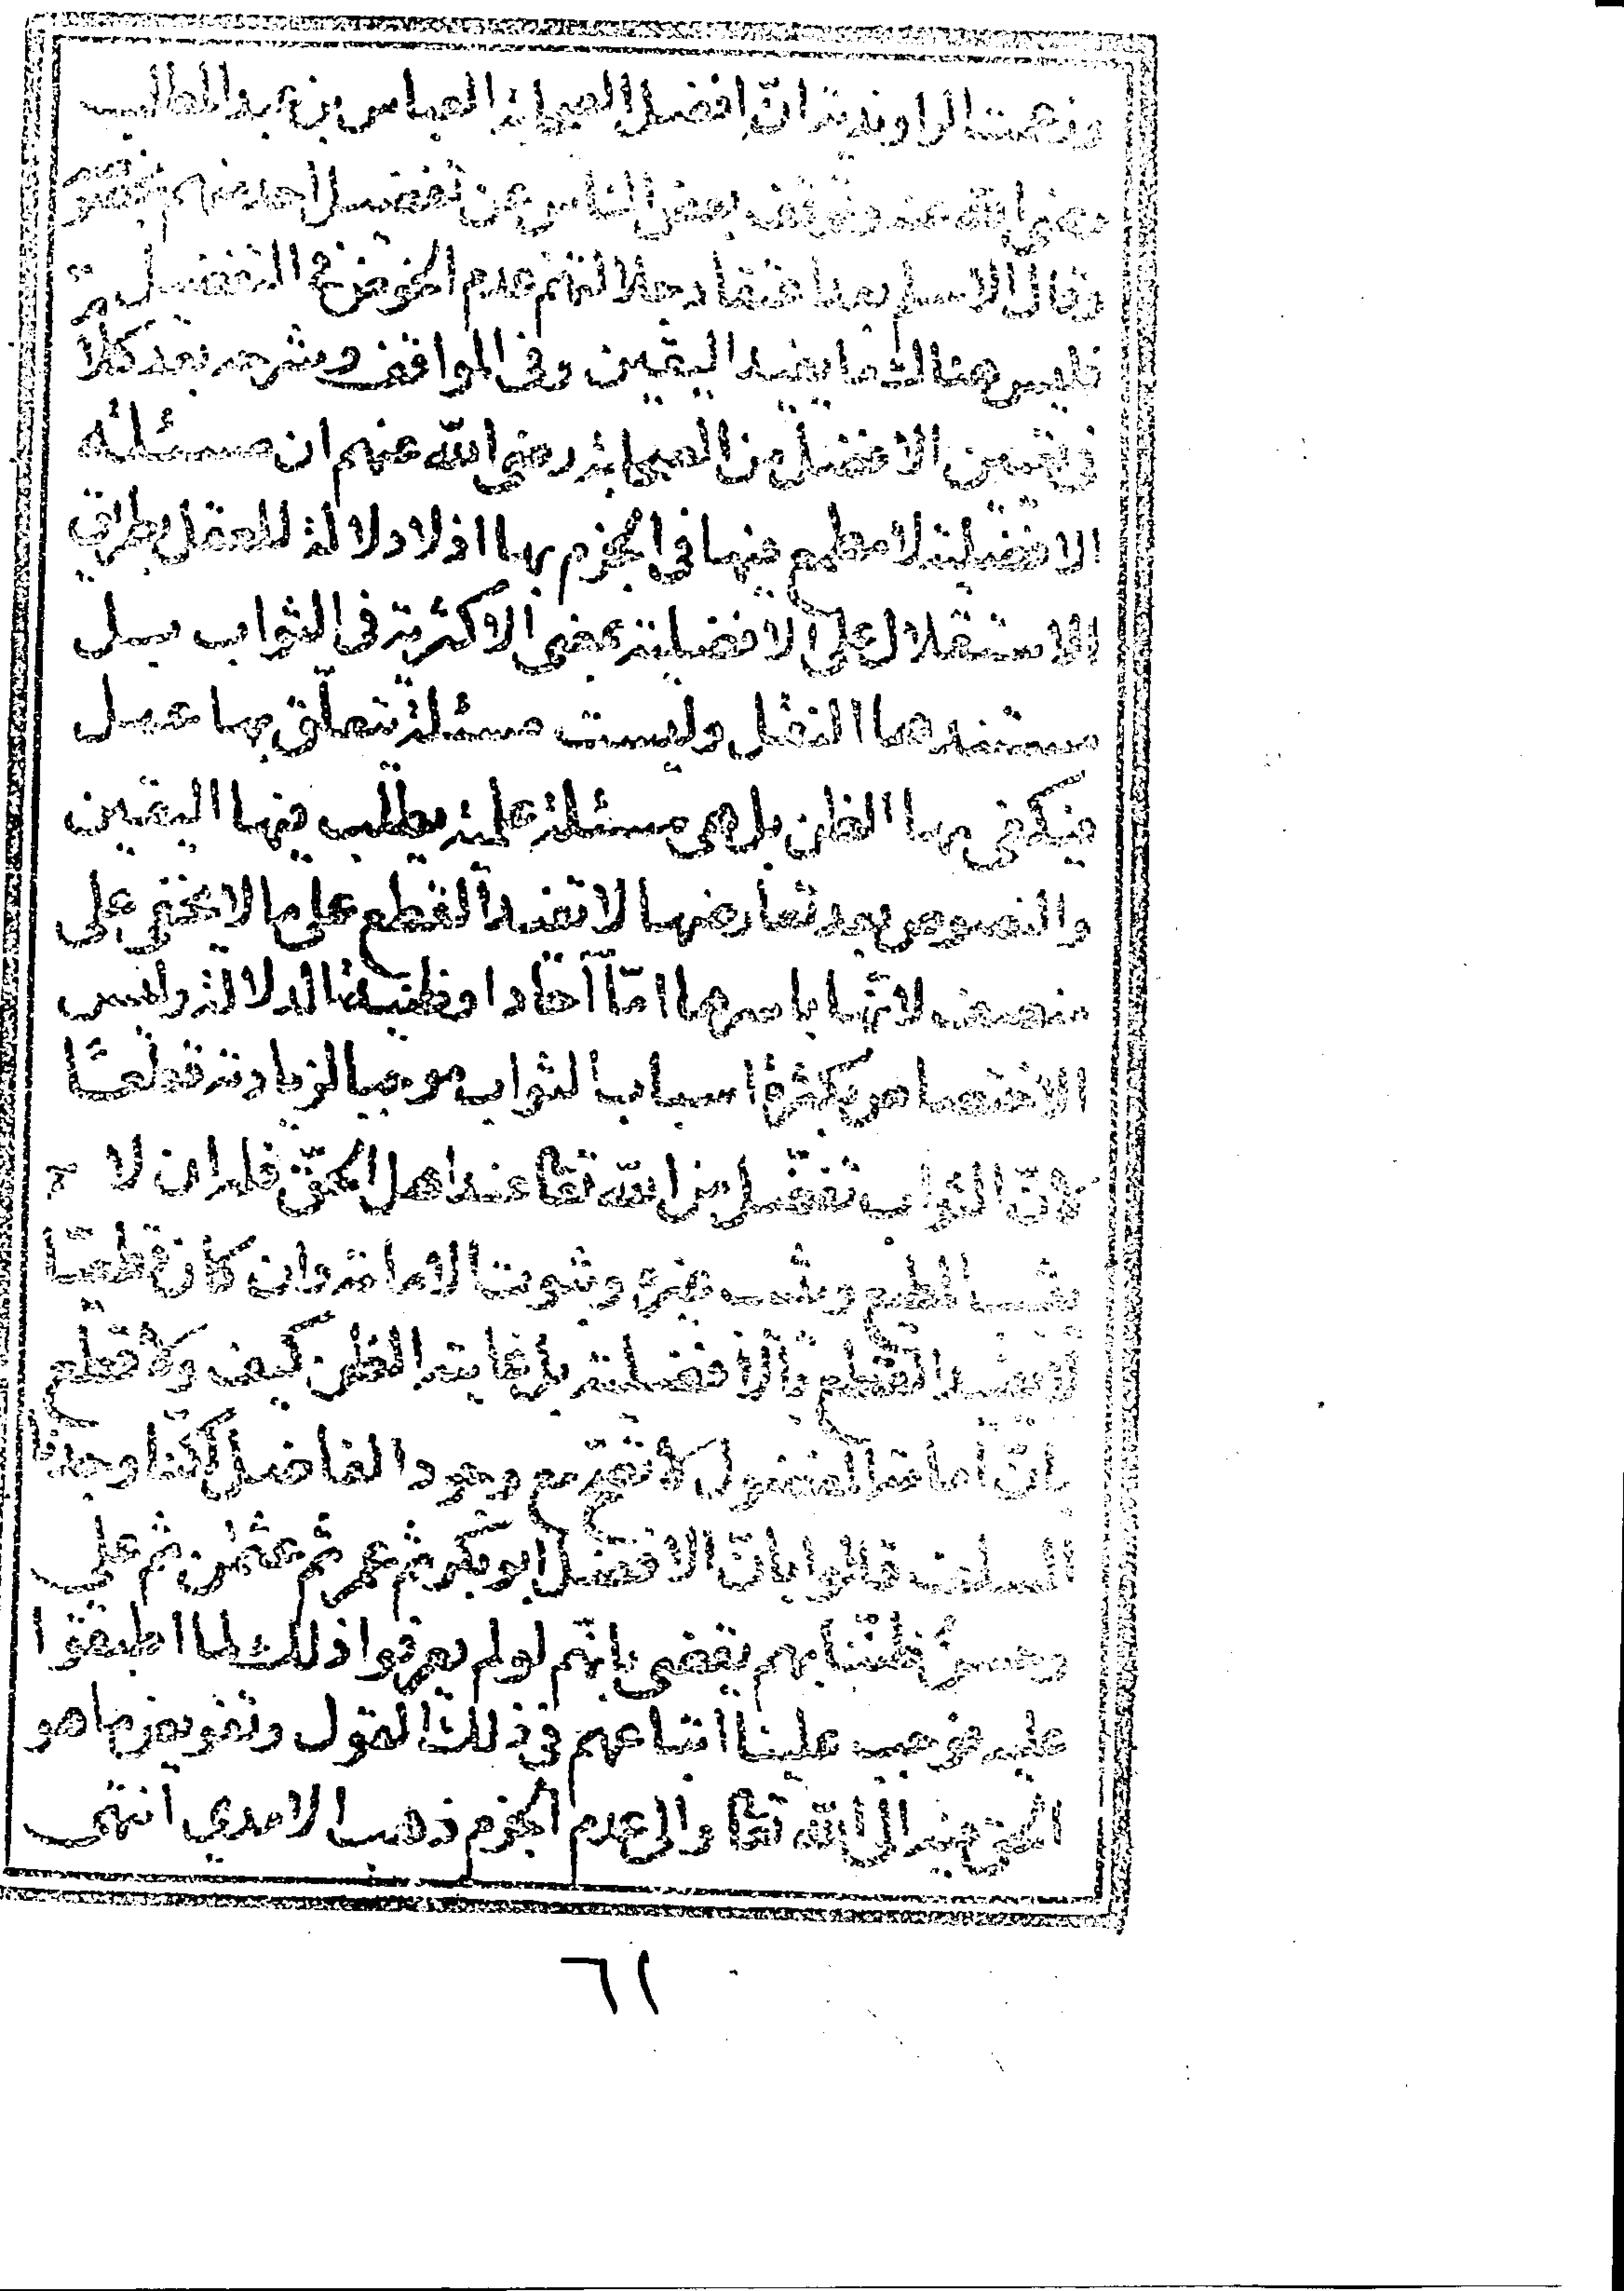 وزعمت الراوندية ان افضل الصحابة العباس بن عبد المطلب
رضي الله عنه وتوقف بعض الناس عن تفضيل احد منهم
وقال الاسلم بعد اعتقاد جلالتهم عدم الخوض في التفضيل
فليس هناك ما يفيد اليقين وفي المواقف وشرحه بعد كلام
في تعيين الافضل من الصحابة رضي الله عنهم ان مسئلة
الافضلية لا مطمع فيها في الجزم بها اذ لا دلالة للعقل بطريق
الاستقلال على الافضلية بمعنى الاكثرية في الثواب بل
مستندها النقل وليست مسئلة تتعلق بها عمل
فيكفي بها الظن بل هي مسئلة علمية يطلب فيها اليقين
والنصوص بعد تعارضها لا تفيد القطع على ما لا يخفى على
منصف لانها باسرها امّا آحادا وظنية الدلالة وليس
الاختصاص بكثرة اسباب الثواب موجبا لزيادته قطعًا
لانّ الثواب تفضّل من الله تعا عند اهل الحق فله ان لا
يثيب المطيع ويثيب غيره وثبوت الامامة وان كان قطعيّا
لا يفيد القطع بالافضلية بل غايته الظن كيف ولا قطع
بانّ امامة المفضول لا تصح مع وجود الفاضل لكنّا وجدنا
السلف قالوا بانّ الافضل ابو بكر ثم عمر ثم عثمٰن ثم علي
وحسن ظننا بهم يقضي بانهم لو لم يعرفوا ذلك لما اطبقوا
عليه فوجب علينا اتباعهم في ذلك القول وتفويض ما هو
الحق فيه الى الله تعا والى عدم الجزم ذهب الامدي انتهى
٦١